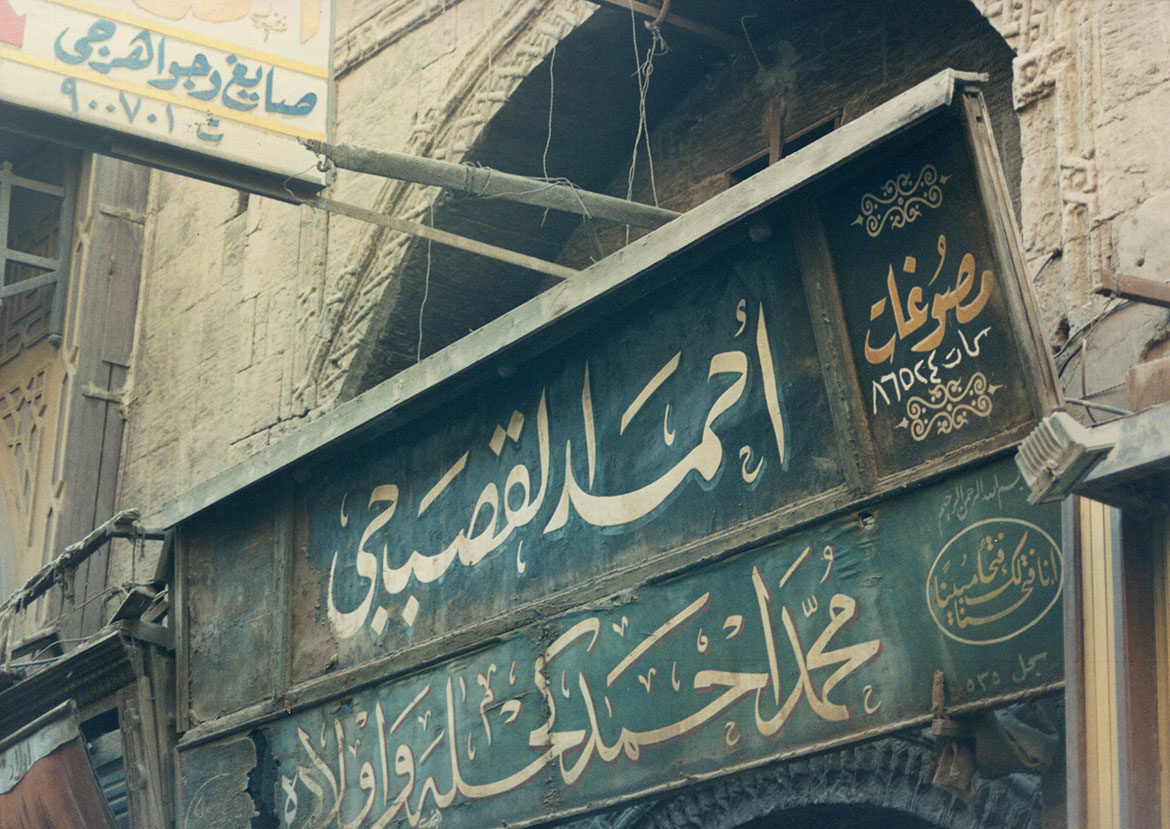 صايغ وجواهرجى
ت ٩٠٠٧٠١
مصوغات
س.ت ٨٦٥٢٤
أحمد القصبجي
بسم الله الرحمن الرحيم
انا فتحنا لك فتحا مبينا
سجل ٥٣٥
محمد احمد كحله واولاده